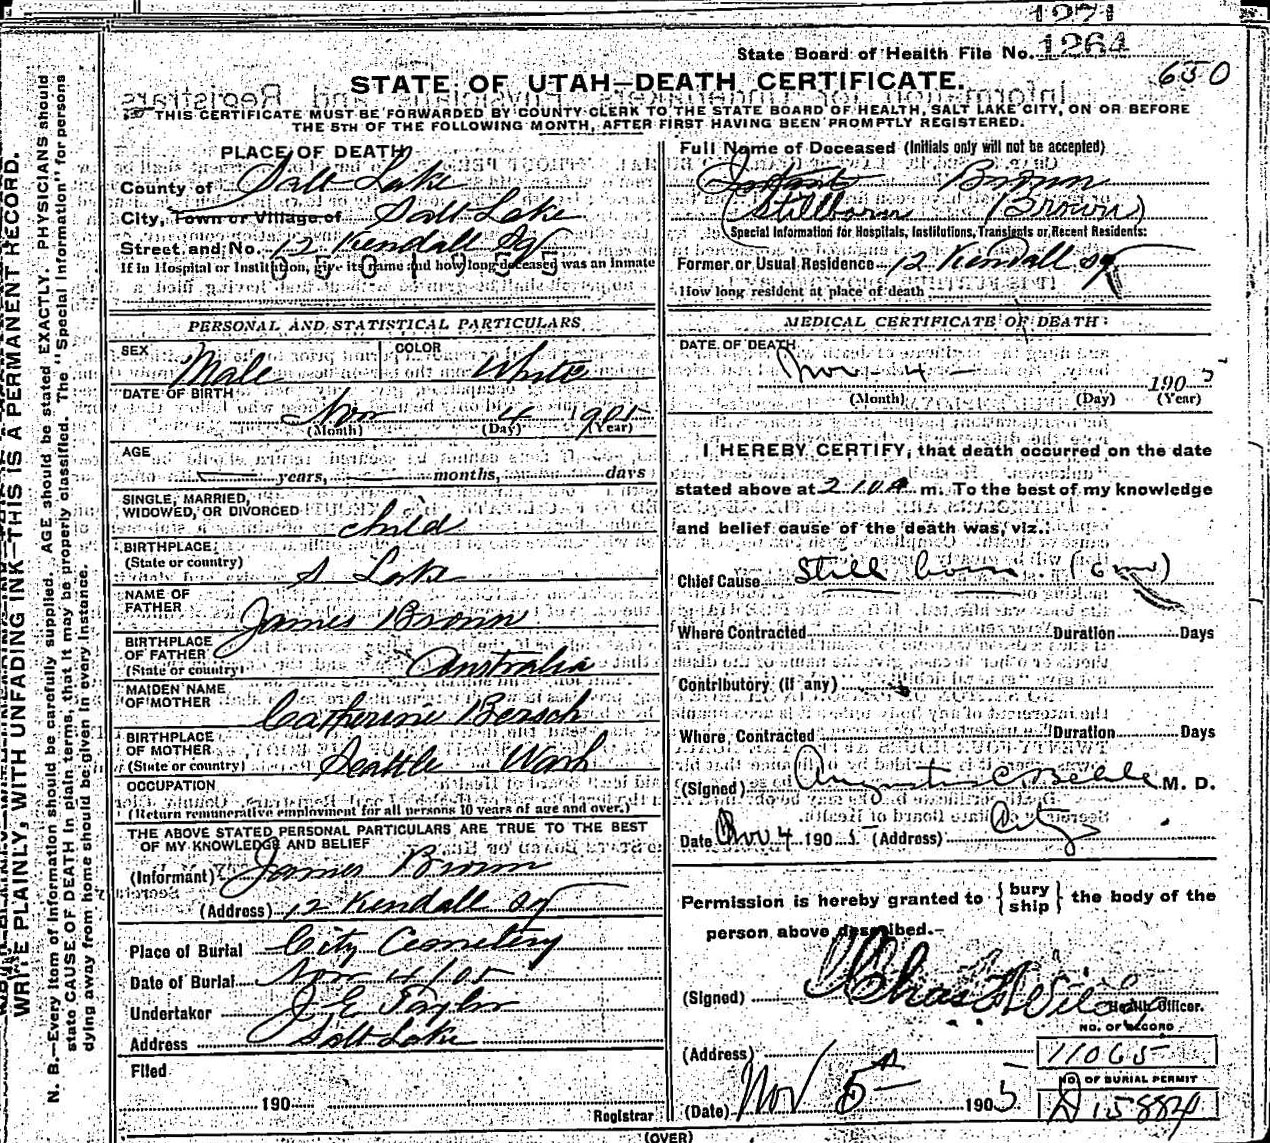 1271
State Board of Health File No. 1264
650
STATE OF UTAH—DEATH CERTIFICATE.
THIS CERTIFICATE MUST BE FORWARDED BY COUNTY CLERK TO THE STATE BOARD OF HEALTH, SALT LAKE CITY, ON OR BEFORE
THE 5TH OF THE FOLLOWING MONTH, AFTER FIRST HAVING BEEN PROMPTLY REGISTERED.
WRITE PLAINLY, WITH UNFADING INK—THIS IS A PERMANENT RECORD.
N. B.—Every item of information should be carefully supplied. AGE should be stated EXACTLY. PHYSICIANS should
state CAUSE OF DEATH in plain terms, that it may be properly classified. The "Special Information" for persons
dying away from home should be given in every instance.
PLACE OF DEATH
County of Salt Lake
City, Town or Village of Salt Lake
Street and No. 12 Kendall Sqr
If in Hospital or Institution, give its name and how long deceased was an inmate
PERSONAL AND STATISTICAL PARTICULARS
SEX Male COLOR White
DATE OF BIRTH
Nov 4 1905
(Month) (Day) (Year)
AGE
years, months, days
SINGLE, MARRIED,
WIDOWED, OR DIVORCED child
BIRTHPLACE
(State or country) S Lake
NAME OF
FATHER James Brown
BIRTHPLACE
OF FATHER
(State or country) Australia
MAIDEN NAME
OF MOTHER Catherine Bersch
BIRTHPLACE
OF MOTHER
(State or country) Seattle Wash
OCCUPATION
(Return remunerative employment for all persons 10 years of age and over.)
THE ABOVE STATED PERSONAL PARTICULARS ARE TRUE TO THE BEST
OF MY KNOWLEDGE AND BELIEF
(Informant) James Brown
(Address) 12 Kendall Sqr
Place of Burial City Cemetery
Date of Burial Nov 4/05
Undertaker J E Taylor
Address Salt Lake
Filed
190
Registrar
Full Name of Deceased (Initials only will not be accepted)
Infant Brown
(Stillborn Brown)
Special Information for Hospitals, Institutions, Transients or Recent Residents:
Former or Usual Residence 12 Kendall Sq
How long resident at place of death
MEDICAL CERTIFICATE OF DEATH:
DATE OF DEATH
Nov - 4 - 1905
(Month) (Day) (Year)
I HEREBY CERTIFY, that death occurred on the date
stated above at 2.10 A m. To the best of my knowledge
and belief cause of the death was, viz.:
Chief Cause Still born. (6 mo)
Where Contracted Duration Days
Contributory (If any)
Where Contracted Duration Days
(Signed) Augustus C Behle M. D.
Date Nov 4 1905 (Address) City
Permission is hereby granted to { bury ship } the body of the
person above described.—
(Signed) Chas Wilcox
Health Officer.
NO. OF RECORD
(Address) 11065
NO. OF BURIAL PERMIT
(Date) Nov 5 1905 A 15884
(OVER)